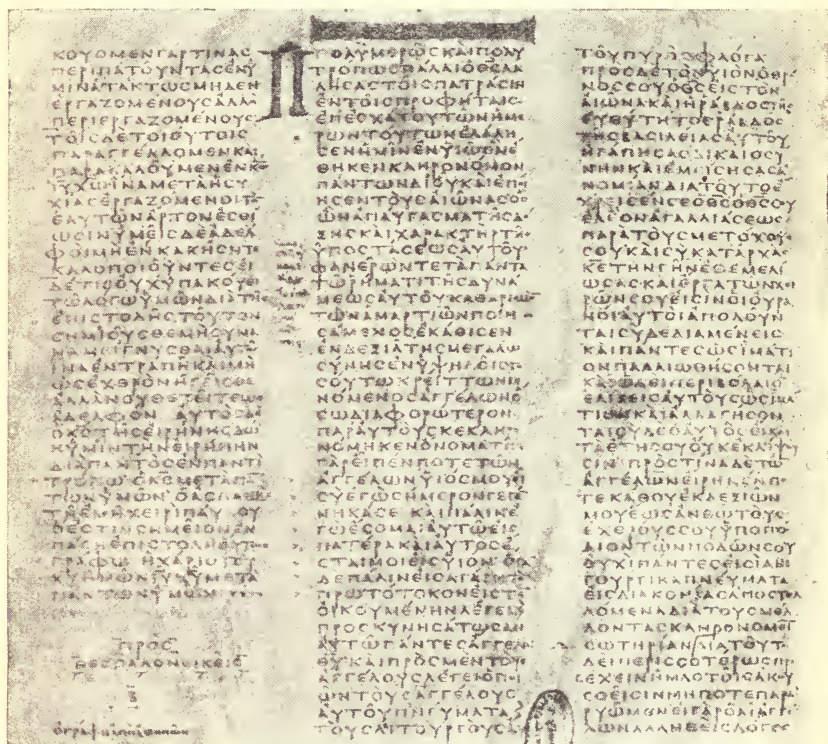 ΚΟΥΟΜΕΝΓΑΡΤΙΝΑϹ
ΠΕΡΙΠΑΤΟΥΝΤΑϹΕΝΥ
ΜΙΝΑΤΑΚΤΩϹΜΗΔΕΝ
ΕΡΓΑΖΟΜΕΝΟΥϹΑΛΛΑ
ΠΕΡΙΕΡΓΑΖΟΜΕΝΟΥϹ
ΤΟΙϹΔΕΤΟΙΟΥΤΟΙϹ
ΠΑΡΑΓΓΕΛΛΟΜΕΝΚΑΙ
ΠΑΡΑΚΑΛΟΥΜΕΝΕΝΚΩ
ΙΥΧΩΙΝΑΜΕΤΑΗϹΥ
ΧΙΑϹΕΡΓΑΖΟΜΕΝΟΙΤ
ΕΑΥΤΩΝΑΡΤΟΝΕϹΘΙ
ΩϹΙΝΥΜΕΙϹΔΕΑΔΕΛ
ΦΟΙΜΗΕΝΚΑΚΗϹΗΤΕ
ΚΑΛΟΠΟΙΟΥΝΤΕϹΕΙ
ΔΕΤΙϹΟΥΧΥΠΑΚΟΥΕΙ
ΤΩΛΟΓΩΥΜΩΝΔΙΑΤΗϹ
ΕΠΙϹΤΟΛΗϹΤΟΥΤΟΝ
ϹΗΜΙΟΥϹΘΕΜΗϹΥΝΑ
ΝΑΜΕΙΓΝΥϹΘΑΙΑΥΤΩ
ΙΝΑΕΝΤΡΑΠΗΚΑΙΜΗ
ΩϹΕΧΘΡΟΝΗΓΕΙϹΘΕ
ΑΛΛΑΝΟΥΘΕΤΕΙΤΕΩϹ
ΑΔΕΛΦΟΝ ΑΥΤΟϹΔΕ
ΟΚϹΤΗϹΕΙΡΗΝΗϹΔΩΗ
ΥΜΙΝΤΗΝΕΙΡΗΝΗΝ
ΔΙΑΠΑΝΤΟϹΕΝΠΑΝΤΙ
ΤΡΟΠΩ ΟΚϹΜΕΤΑΠΑ
ΤΩΝΥΜΩΝ ΟΑϹΠΑϹΜΟϹ
ΤΗΕΜΗΧΕΙΡΙΠΑΥΛΟΥ
ΟΕϹΤΙΝϹΗΜΕΙΟΝΕΝ
ΠΑϹΗΕΠΙϹΤΟΛΗΟΥΤΩϹ
ΓΡΑΦΩ ΗΧΑΡΙϹΤΟΥ
ΚΥΗΜΩΝΙΥΧΥΜΕΤΑ
ΠΑΝΤΩΝΥΜΩΝ
ΠΡΟϹ
ΘΕϹϹΑΛΟΝΕΙΚΕΙϹ
Β
ΠΟΛΥΜΕΡΩϹΚΑΙΠΟΛΥ
ΤΡΟΠΩϹΠΑΛΑΙΟΘϹΛΑ
ΛΗϹΑϹΤΟΙϹΠΑΤΡΑϹΙΝ
ΕΝΤΟΙϹΠΡΟΦΗΤΑΙϹ
ΕΠΕϹΧΑΤΟΥΤΩΝΗΜΕ
ΡΩΝΤΟΥΤΩΝΕΛΑΛΗ
ϹΕΝΗΜΙΝΕΝΥΙΩΟΝΕ
ΘΗΚΕΝΚΛΗΡΟΝΟΜΟΝ
ΠΑΝΤΩΝΔΙΟΥΚΑΙΕΠΟΙ
ΗϹΕΝΤΟΥϹΑΙΩΝΑϹΟϹ
ΩΝΑΠΑΥΓΑϹΜΑΤΗϹΔΟ
ΞΗϹΚΑΙΧΑΡΑΚΤΗΡΤΗϹ
ΥΠΟϹΤΑϹΕΩϹΑΥΤΟΥ
ΦΑΝΕΡΩΝΤΕΤΑΠΑΝΤΑ
ΤΩΡΗΜΑΤΙΤΗϹΔΥΝΑ
ΜΕΩϹΑΥΤΟΥΚΑΘΑΡΙϹΜΟ
ΤΩΝΑΜΑΡΤΙΩΝΠΟΙΗ
ϹΑΜΕΝΟϹΕΚΑΘΙϹΕΝ
ΕΝΔΕΞΙΑΤΗϹΜΕΓΑΛΩ
ϹΥΝΗϹΕΝΥΨΗΛΟΙϹΤΟ
ϹΟΥΤΩΚΡΕΙΤΤΩΝΓΕ
ΝΟΜΕΝΟϹΑΓΓΕΛΩΝΟ
ϹΩΔΙΑΦΟΡΩΤΕΡΟΝ
ΠΑΡΑΥΤΟΥϹΚΕΚΛΗΡΟ
ΝΟΜΗΚΕΝΟΝΟΜΑΤΙΝΙ
ΓΑΡΕΙΠΕΝΠΟΤΕΤΩΝ
ΑΓΓΕΛΩΝΥΙΟϹΜΟΥΕΙ
ϹΥΕΓΩϹΗΜΕΡΟΝΓΕΓΕΝ
ΝΗΚΑϹΕ ΚΑΙΠΑΛΙΝΕ
ΓΩΕϹΟΜΑΙΑΥΤΩΕΙϹ
ΠΑΤΕΡΑΚΑΙΑΥΤΟϹΕ
ϹΤΑΙΜΟΙΕΙϹΥΙΟΝ ΟΤΑ
ΔΕΠΑΛΙΝΕΙϹΑΓΑΓΗΤΟ
ΠΡΩΤΟΤΟΚΟΝΕΙϹΤΗ
ΟΙΚΟΥΜΕΝΗΝΛΕΓΕΙ
ΠΡΟϹΚΥΝΗϹΑΤΩϹΑΝ
ΑΥΤΩΠΑΝΤΕϹΑΓΓΕΛΟΙ
ΘΥΚΑΙΠΡΟϹΜΕΝΤΟΥϹ
ΑΓΓΕΛΟΥϹΛΕΓΕΙΟΠΟΙ
ΩΝΤΟΥϹΑΓΓΕΛΟΥϹ
ΑΥΤΟΥΠΝΕΥΜΑΤΑ
ΤΟΥϹΛΙΤΟΥΡΓΟΥϹΑΥ
ΤΟΥΠΥΡΟϹΦΛΟΓΑ
ΠΡΟϹΔΕΤΟΝΥΙΟΝΟΘΡΟ
ΝΟϹϹΟΥΟΘϹΕΙϹΤΟΝ
ΑΙΩΝΑΚΑΙΗΡΑΒΔΟϹΤΗϹ
ΕΥΘΥΤΗΤΟϹΡΑΒΔΟϹ
ΤΗϹΒΑϹΙΛΕΙΑϹΑΥΤΟΥ
ΗΓΑΠΗϹΑϹΔΙΚΑΙΟϹΥ
ΝΗΝΚΑΙΕΜΕΙϹΗϹΑϹΑ
ΝΟΜΙΑΝΔΙΑΤΟΥΤΟΕ
ΧΡΕΙϹΕΝϹΕΟΘϹΟΘϹϹΟΥ
ΕΛΕΟΝΑΓΑΛΛΙΑϹΕΩϹ
ΠΑΡΑΤΟΥϹΜΕΤΟΧΟΥϹ
ϹΟΥΚΑΙϹΥΚΑΤΑΡΧΑϹ
ΚΕΤΗΝΓΗΝΕΘΕΜΕΛΙ
ΩϹΑϹΚΑΙΕΡΓΑΤΩΝΧΕΙ
ΡΩΝϹΟΥΕΙϹΙΝΟΙΟΥΡΑ
ΝΟΙΑΥΤΟΙΑΠΟΛΟΥΝ
ΤΑΙϹΥΔΕΔΙΑΜΕΝΕΙϹ
ΚΑΙΠΑΝΤΕϹΩϹΙΜΑΤΙ
ΟΝΠΑΛΑΙΩΘΗϹΟΝΤΑΙ
ΚΑΙΩϹΕΙΠΕΡΙΒΟΛΑΙΟ
ΕΛΙΞΕΙϹΑΥΤΟΥϹΩϹΙΜΑ
ΤΙΟΝΚΑΙΑΛΛΑΓΗϹΟΝ
ΤΑΙϹΥΔΕΟΑΥΤΟϹΕΙΚΑΙ
ΤΑΕΤΗϹΟΥΟΥΚΕΚΛΕΙΨΟΥ
ϹΙΝ ΠΡΟϹΤΙΝΑΔΕΤΩ
ΑΓΓΕΛΩΝΕΙΡΗΚΕΝΠΟ
ΤΕΚΑΘΟΥΕΚΔΕΞΙΩΝ
ΜΟΥΕΩϹΑΝΘΩΤΟΥϹ
ΕΧΘΡΟΥϹϹΟΥΥΠΟΠΟ
ΔΙΟΝΤΩΝΠΟΔΩΝϹΟΥ
ΟΥΧΙΠΑΝΤΕϹΕΙϹΙΛΙ
ΤΟΥΡΓΙΚΑΠΝΕΥΜΑΤΑ
ΕΙϹΔΙΑΚΟΝΙΑϹΑΠΟϹΤΕΛ
ΛΟΜΕΝΑΔΙΑΤΟΥϹΜΕΛ
ΛΟΝΤΑϹΚΛΗΡΟΝΟΜΕΙ
ϹΩΤΗΡΙΑΝΔΙΑΤΟΥΤ
ΔΕΙΠΕΡΙϹϹΟΤΕΡΩϹΠΡΟϹ
ΕΧΕΙΝΗΜΑϹΤΟΙϹΑΚΟΥ
ϹΘΕΙϹΙΝΜΗΠΟΤΕΠΑΡΑ
ΡΥΩΜΕΝΕΙΓΑΡΟΔΙΑΓΓΕ
ΛΩΝΛΑΛΗΘΕΙϹΛΟΓΟϹ